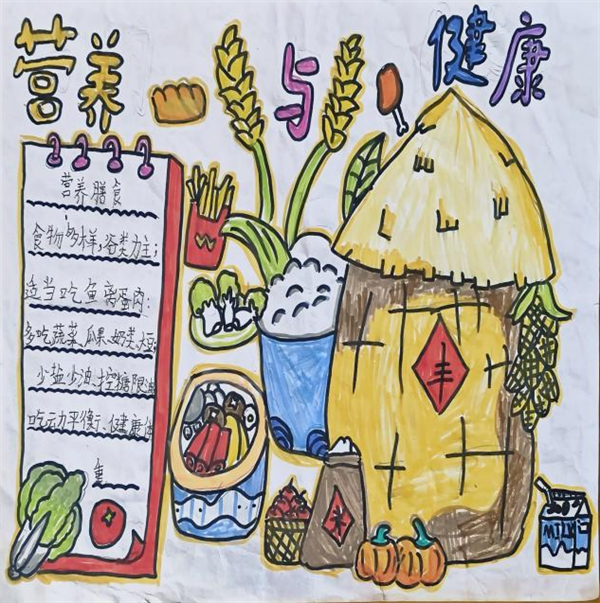 营养与健康
营养膳食
食物多样,谷类为主;
适当吃鱼禽蛋肉:
多吃蔬菜、瓜果、奶类、大豆;
少盐少油、控糖限油
吃动平衡、健康体
重
丰
米
MILK